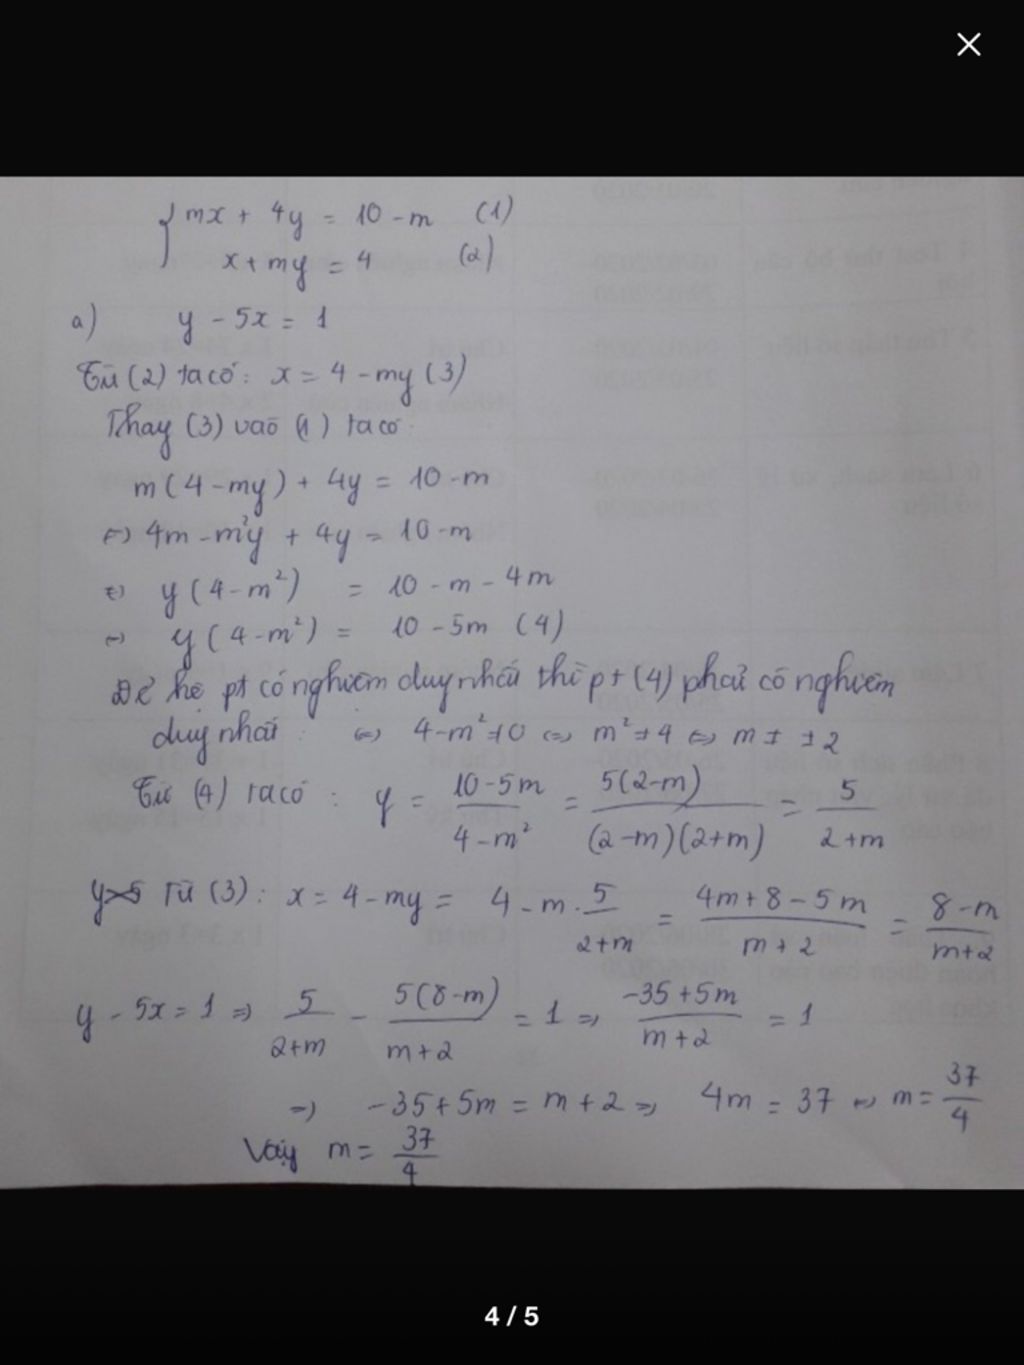 mx + 4y = 10 - m (1)
x + my = 4 (2)
a) y - 5x = 1
Từ (2) ta có: x = 4 - my (3)
Thay (3) vào (1) ta có
m(4 - my) + 4y = 10 - m
⇔ 4m - m²y + 4y = 10 - m
⇔ y(4 - m²) = 10 - m - 4m
⇔ y(4 - m²) = 10 - 5m (4)
Để hệ pt có nghiệm duy nhất thì pt (4) phải có nghiệm
duy nhất ⇔ 4 - m² ≠ 0 ⇔ m² ≠ 4 ⇔ m ≠ ±2
Từ (4) ta có : y = (10-5m)/(4-m²) = 5(2-m)/((2-m)(2+m)) = 5/(2+m)
Từ (3): x = 4 - my = 4 - m. 5/(2+m) = (4m+8-5m)/(m+2) = (8-m)/(m+2)
y - 5x = 1 ⇒ 5/(2+m) - 5(8-m)/(m+2) = 1 ⇒ (-35+5m)/(m+2) = 1
⇒ -35+5m = m+2 ⇒ 4m = 37 ⇔ m = 37/4
Vậy m = 37/4
4 / 5